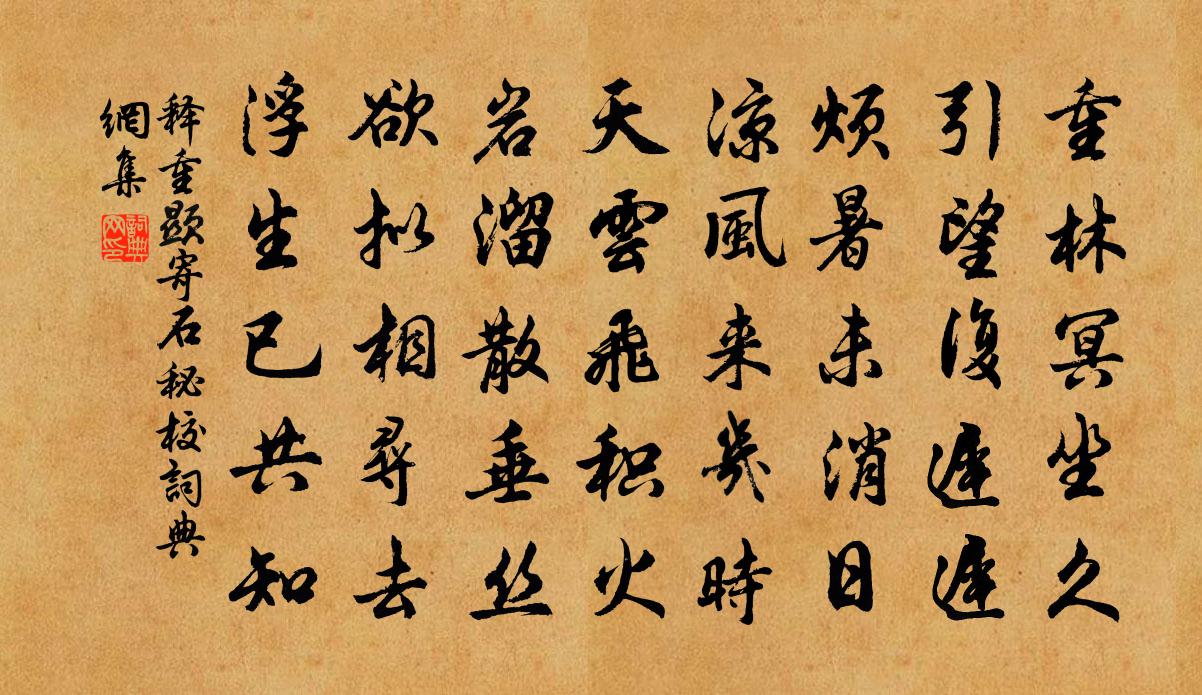 重林冥坐久
引望復遲遲
煩暑未消日
涼風来幾時
天雲飛积火
岩溜散垂丝
欲拟相尋去
浮生已共知
释重顯寄石秘校詞典
網集
詞典網印